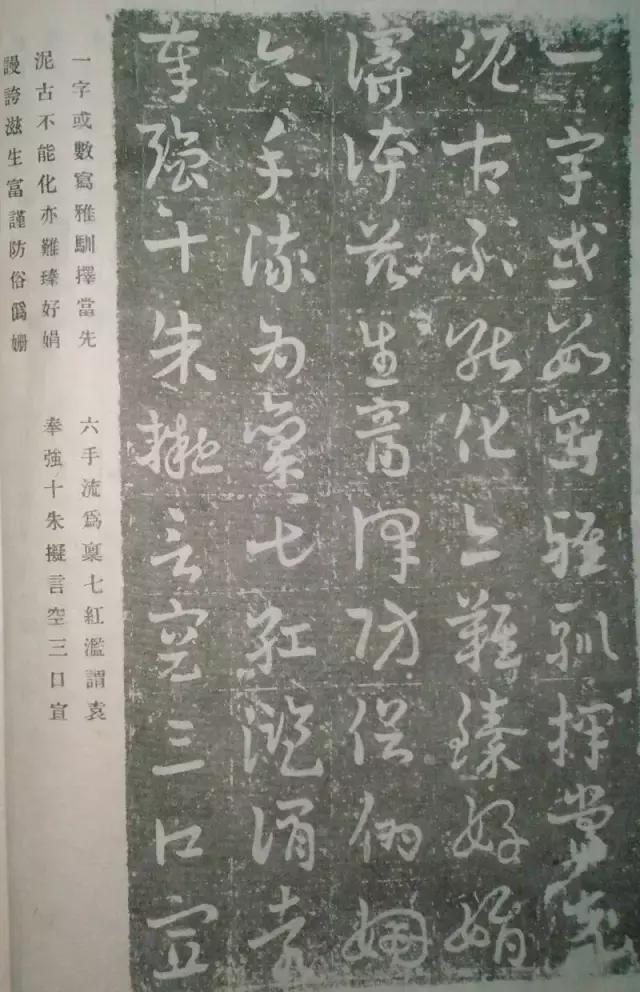 一字或數寫雅馴擇當先
泥古不能化亦難臻好娟
謾誇滋生富謹防俗僞姍
六手流爲稟七紅濫謂袁
奉強十朱擬言空三口宣
一字或數寫雅馴擇當先
泥古不能化亦難臻好娟
謾誇滋生富謹防俗僞姍
六手流爲稟七紅濫謂袁
奉強十朱擬言空三口宣